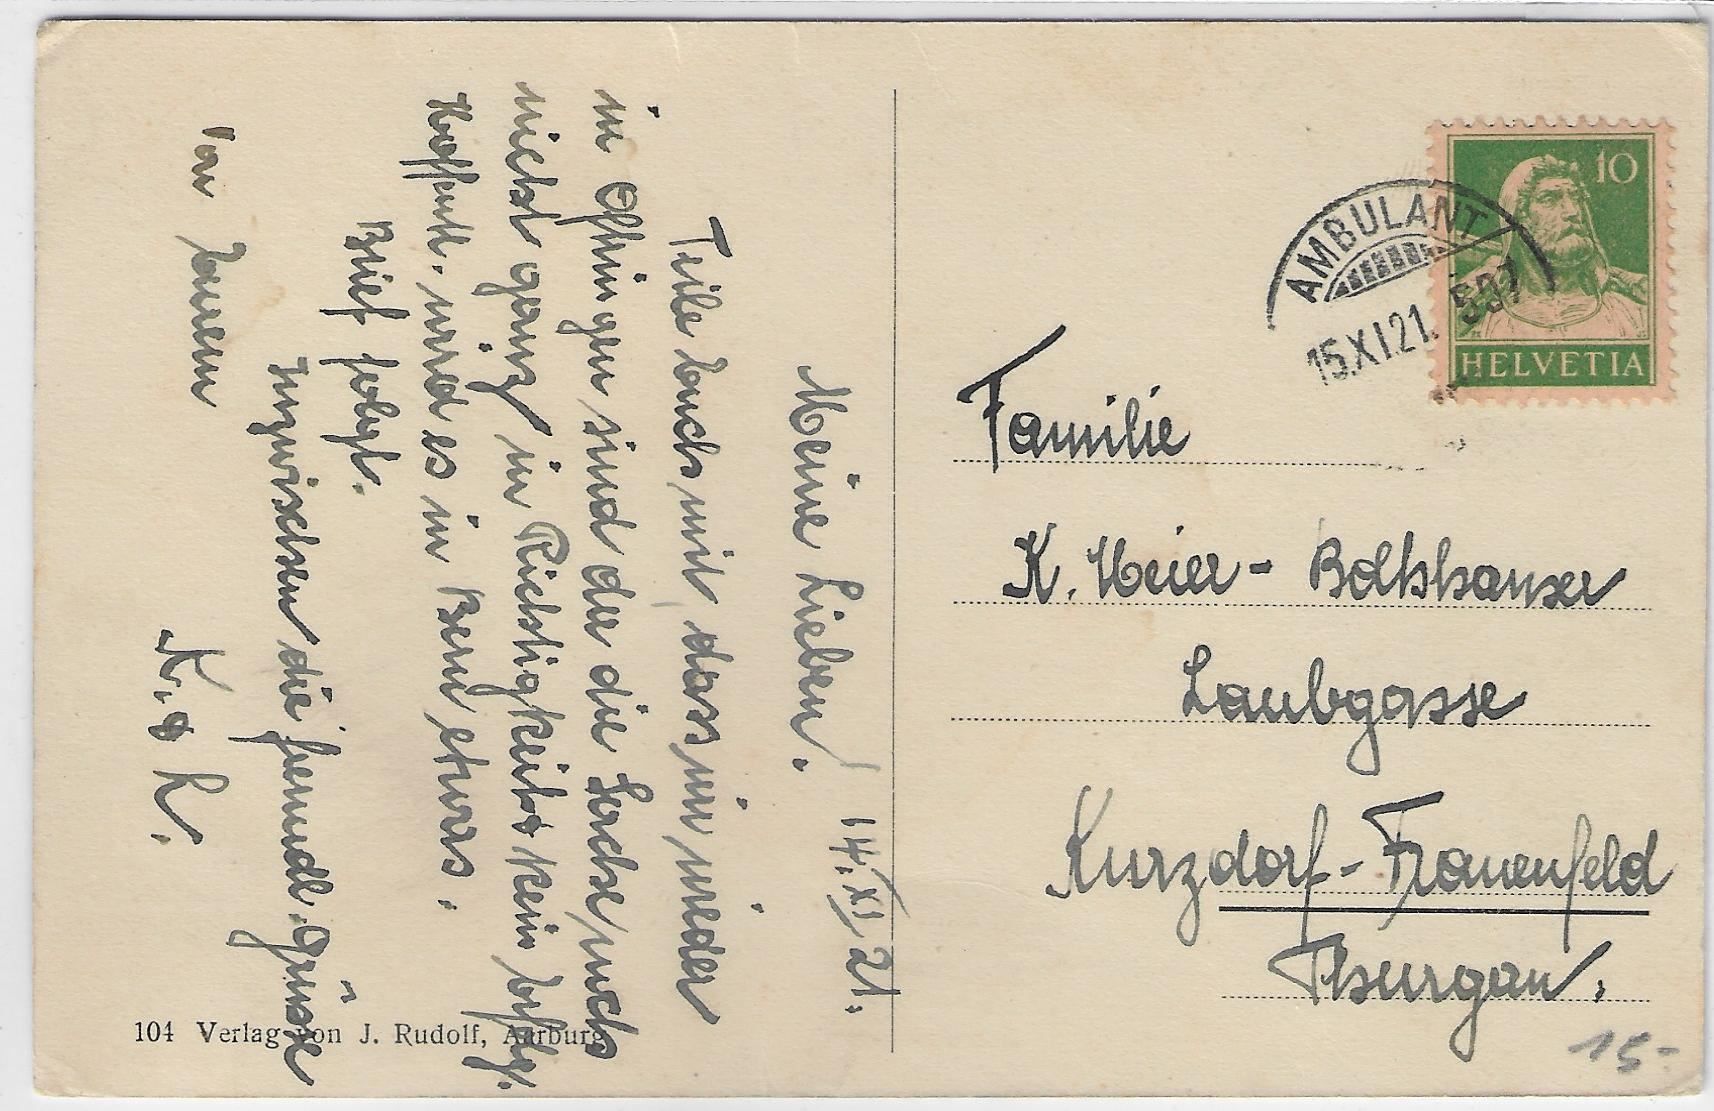 14. XI. 21.
Meine Lieben!
Teile Euch mit, dass wir wieder
in Oftringen sind da die Sache noch
nicht ganz in Richtigkeit & kein
Hoffentl. wird es in Bern etwas.
Brief folgt.
Inzwischen die freundl. Grüsse
von Euern
K. & L.
104 Verlag von J. Rudolf, Aarburg
10
HELVETIA
AMBULANT
15.XI.21. 507
Familie
K. Meier-Bolthauser
Laubgasse
Kurzdorf-Frauenfeld
Thurgau.
15-